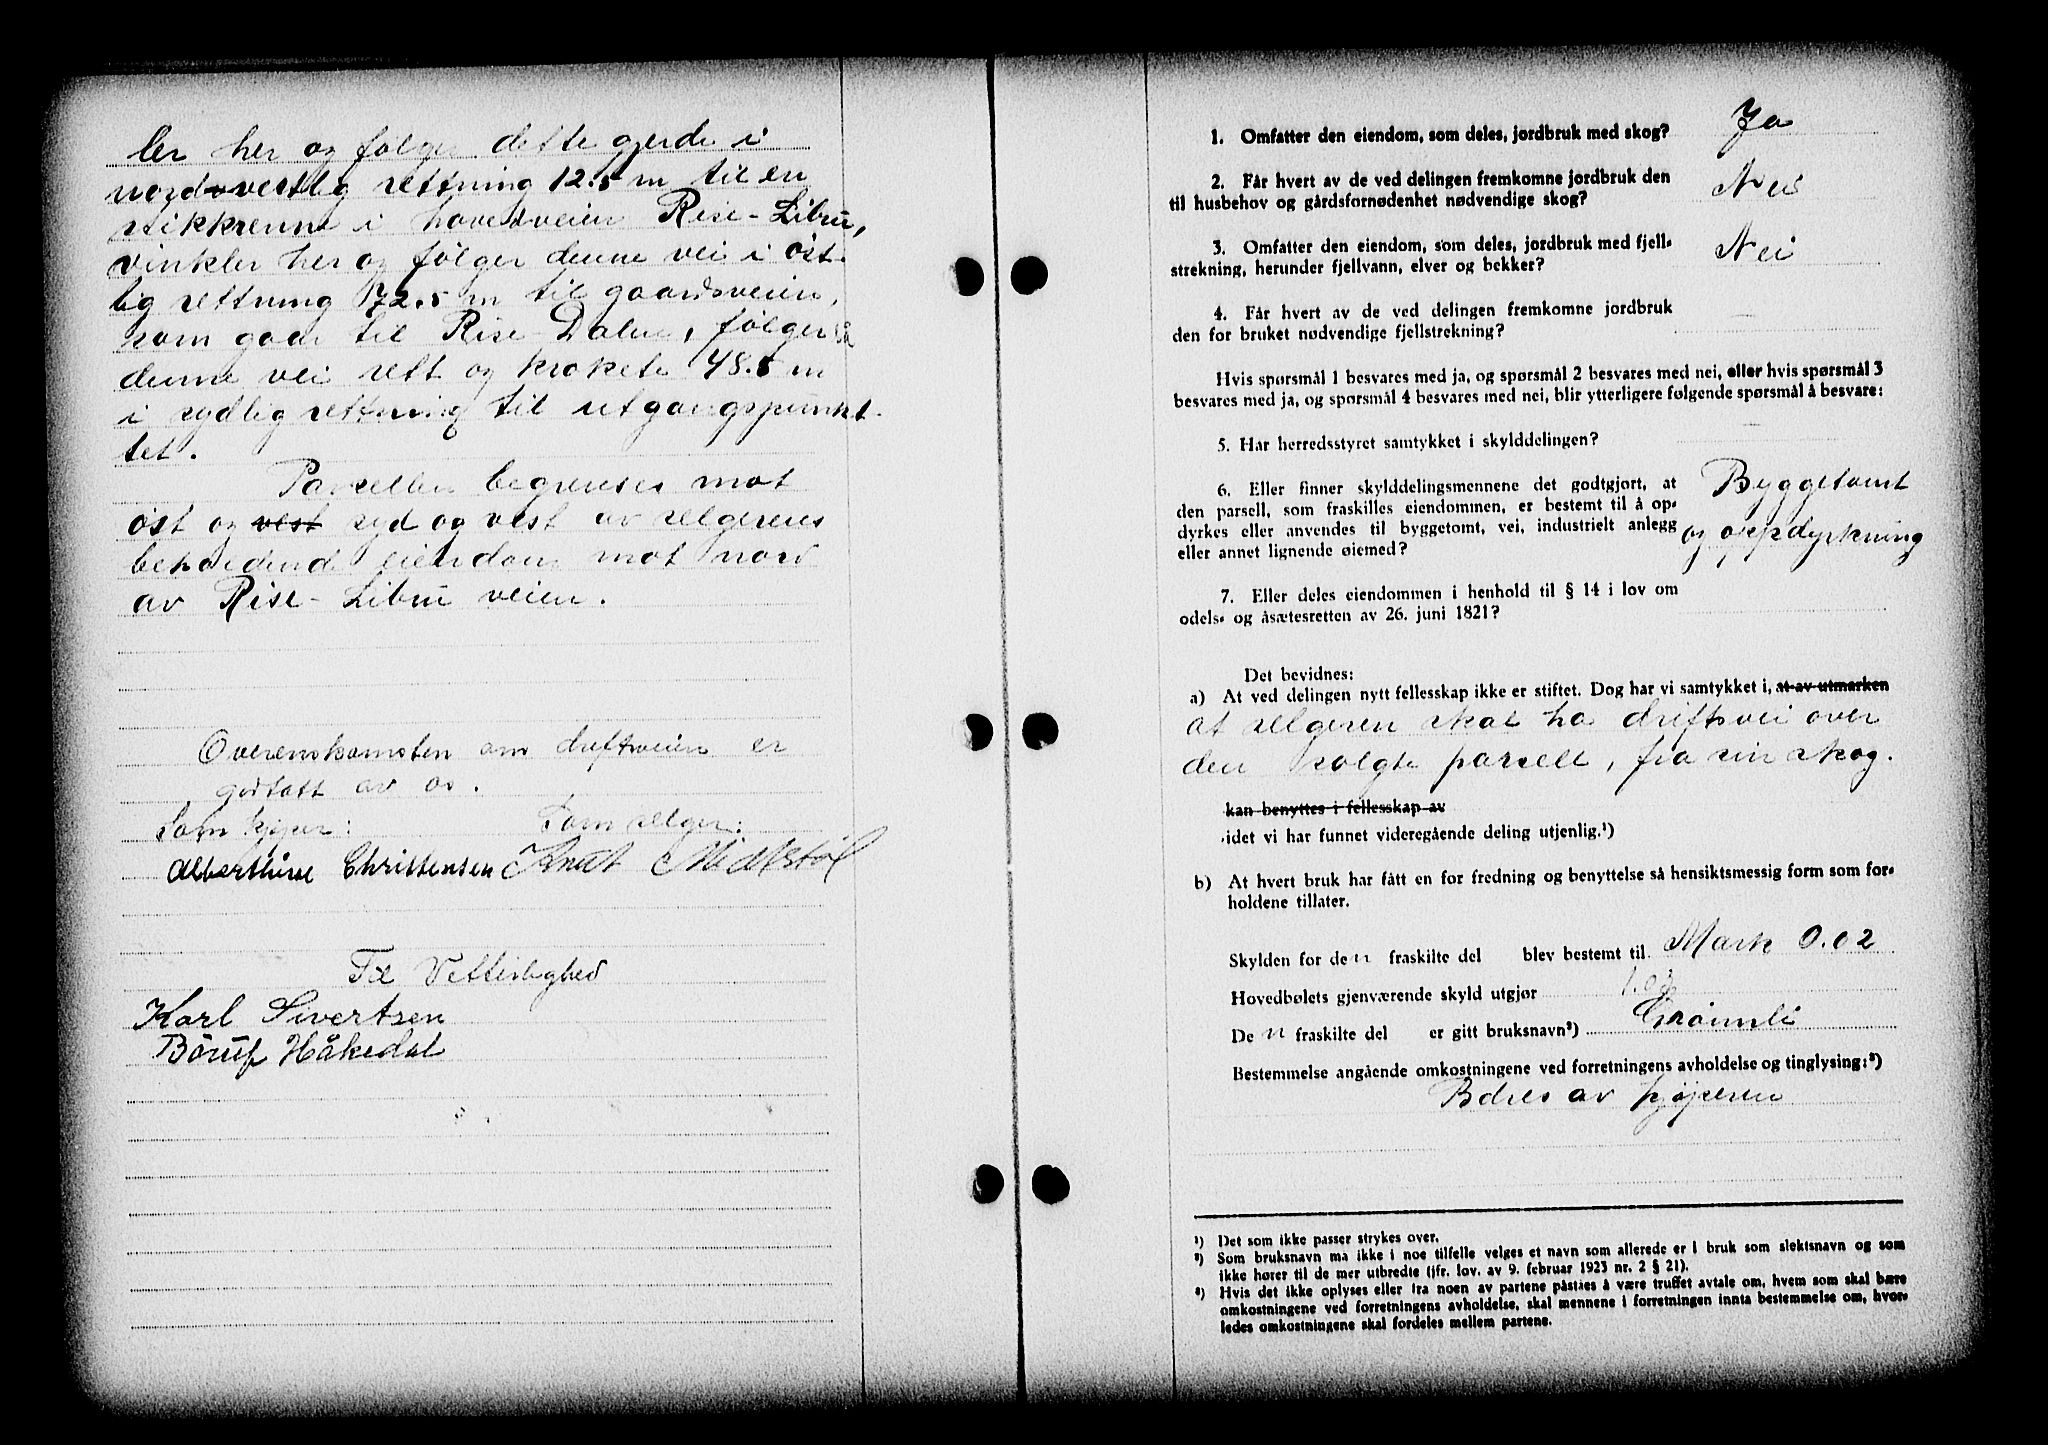 ler her og følger dette gjerde i
nordvestlig rettning 12.5 m til en
stikkrenne i hovedveien Rise-Libru,
vinkler her og følger denne vei i øst-
lig rettning 72.5 m til gaardsveien,
som gaar til Rise-Dalen, følger så
denne vei rett og krokete 48.5 m
i sydlig rettning til utgangspunkt-
tet.
Parcellen begrenses mot
øst og vest syd og vest av selgerens
beholdend eiendom mot nord
av Rise-Libru veien.
Overenskomsten om driftsveien er
godtatt av os.
Som kjøper: Som selger:
Alberthine Christensen Knut Midtstøl
Til Vitterlighed
Karl Sivertsen
Børuf Håkedal
1. Omfatter den eiendom, som deles, jordbruk med skog? Ja
2. Får hvert av de ved delingen fremkomne jordbruk den
til husbehov og gårdsfornødenhet nødvendige skog? Nei
3. Omfatter den eiendom, som deles, jordbruk med fjell-
strekning, herunder fjellvann, elver og bekker? Nei
4. Får hvert av de ved delingen fremkomne jordbruk
den for bruket nødvendige fjellstrekning? —
Hvis spørsmål 1 besvares med ja, og spørsmål 2 besvares med nei, eller hvis spørsmål 3
besvares med ja, og spørsmål 4 besvares med nei, blir ytterligere følgende spørsmål å besvare:
5. Har herredsstyret samtykket i skylddelingen? —
6. Eller finner skylddelingsmennene det godtgjort, at
den parsell, som fraskilles eiendommen, er bestemt til å op-
dyrkes eller anvendes til byggetomt, vei, industrielt anlegg
eller annet lignende øiemed? Byggetomt
og oppdyrkning
7. Eller deles eiendommen i henhold til § 14 i lov om
odels- og åsætesretten av 26. juni 1821?
Det bevidnes:
a) At ved delingen nytt fellesskap ikke er stiftet. Dog har vi samtykket i, at av utmarken
at selgeren skal ha driftsvei over
den solgte parsell, fra sin skog.
kan benyttes i fellesskap av
idet vi har funnet videregående deling utjenlig.¹)
b) At hvert bruk har fått en for fredning og benyttelse så hensiktsmessig form som for-
holdene tillater.
Skylden for den fraskilte del blev bestemt til Mark 0.02
Hovedbølets gjenværende skyld utgjør
Den fraskilte del er gitt bruksnavn²) Grømli
Bestemmelse angående omkostningene ved forretningens avholdelse og tinglysing:³)
Bæres av kjøperen
¹) Det som ikke passer strykes over.
²) Som bruksnavn må ikke i noe tilfelle velges et navn som allerede er i bruk som slektsnavn og som
ikke hører til de mer utbredte (jfr. lov. av 9. februar 1923 nr. 2 § 21).
³) Hvis det ikke oplyses eller fra noen av partene påståes å være truffet avtale om, hvem som skal bære
omkostningene ved forretningens avholdelse, skal mennene i forretningen innta bestemmelse om, hvor-
ledes omkostningene skal fordeles mellem partene.